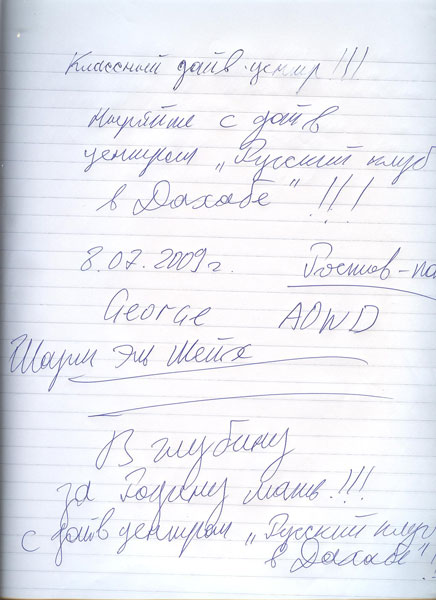 Классный дайв-центр!!!
Ныряйте с дайв
центром „Русский клуб
в Дахабе"!!!
8.07.2009г. Ростов-на
George AOWD
Шарм Эль Шейх
В глубину
за Родину мать!!!
с дайв центром „Русский клуб
в Дахабе"!